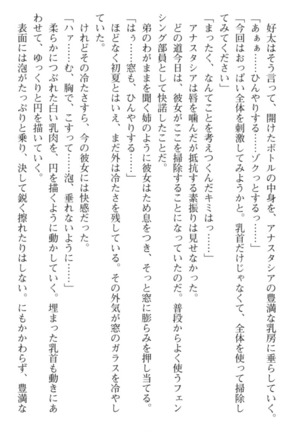 好太はそう言って、開けたボトルの中身を、アナスタシアの豊満な乳房に垂らしていく。
「あぁぁ……ひんやりする……ゾクっとするっ……」
「今回はおっぱい全体を刺激してみようかと。乳首だけじゃなくて、全体を使って掃除し
てみてください」
「まったく、なんてことを考えつくんだキミはっ……」
アナスタシアは唇を噛んだが抵抗する素振りは見せなかった。
どの道今日は、彼女がここを掃除することになっていたのだ。普段からよく使うフェン
シング部員として快諾したことだ。
弟のわがままを聞く姉のように彼女はため息をつき、そっと窓に膨らみを押し当てる。
「はぅ……窓も、ひんやりする……」
ほどなく初夏とはいえ、まだ外は冷たさを残している。その外気が窓のガラスを冷やし
ていた。
けれどその冷たさすら、今の彼女には快感だった。
「ハァ……む、胸で、こすって……泡、垂れないように……」
柔らかにつぶれた白い乳肉を、円を描くように動かしていく。埋まった乳首も動きにあ
わせて、ゆっくりと円を描いていく。
表面には泡がたっぷりと乗り、決して鋭く擦れたりはしない。にもかかわらず、豊満な